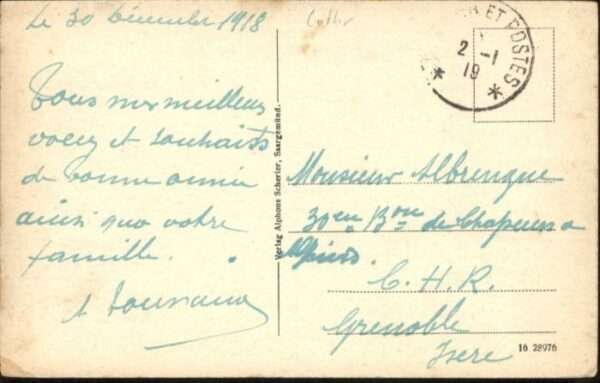 Le 30 décembre 1918
Tous nos meilleurs
voeux et souhaits
de bonne année
ainsi que votre
famille.
Verlag Alphons Scherier, Saargemünd.
ET POSTES
2 -1
19
Monsieur Albrengue
30em Bon de Chasseurs a
Alpins.
C. H. R.
Grenoble
Isere
16 28976